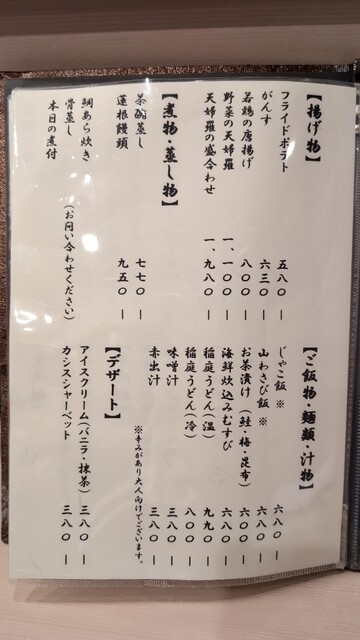 【揚げ物】
フライドポテト 五八〇ー
がんす 六三〇ー
若鶏の唐揚げ 八〇〇ー
野菜の天婦羅 一、一〇〇ー
天婦羅の盛合わせ 一、九八〇ー
【煮物・蒸し物】
茶碗蒸し 七七〇ー
蓮根饅頭 九五〇ー
鯛あら炊き
骨蒸し (お問い合わせください)
本日の煮付
【ご飯物・麺類・汁物】
じゃこ飯 ※ 六八〇ー
山わさび飯 ※ 六八〇ー
お茶漬け (鮭・梅・昆布) 六八〇ー
海鮮炊込みむすび 六八〇ー
稲庭うどん(温) 九九〇ー
稲庭うどん(冷) 八〇〇ー
味噌汁 三八〇ー
赤出汁 三八〇ー
※辛みがあり大人向けでございます。
【デザート】
アイスクリーム(バニラ・抹茶) 三八〇ー
カシスシャーベット 三八〇ー